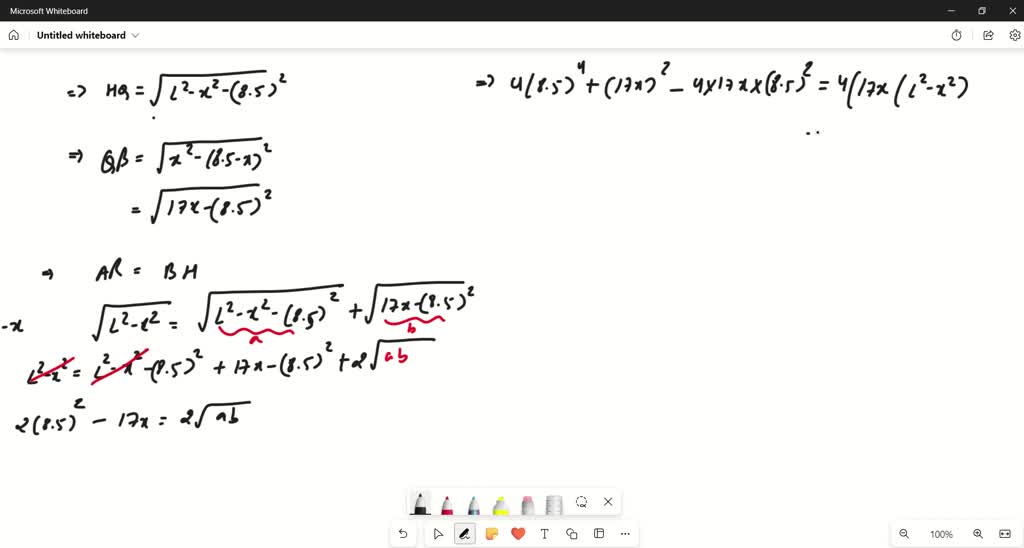 Microsoft Whiteboard
Untitled whiteboard
⇒ HQ = √(L²-x²-(8.5)²)
⇒ QB = √(x²-(8.5-x)²)
= √(17x-(8.5)²)
⇒ AR = BH
-x √(L²-x²) = √(L²-x²-(8.5)²) + √(17x-(8.5)²)
a b
L²-x² = L²-x²-(8.5)² + 17x-(8.5)² + 2√ab
2(8.5)² - 17x = 2√ab
⇒ 4(8.5)⁴ + (17x)² - 4×17x×(8.5)² = 4(17x(L²-x²)
T
100%